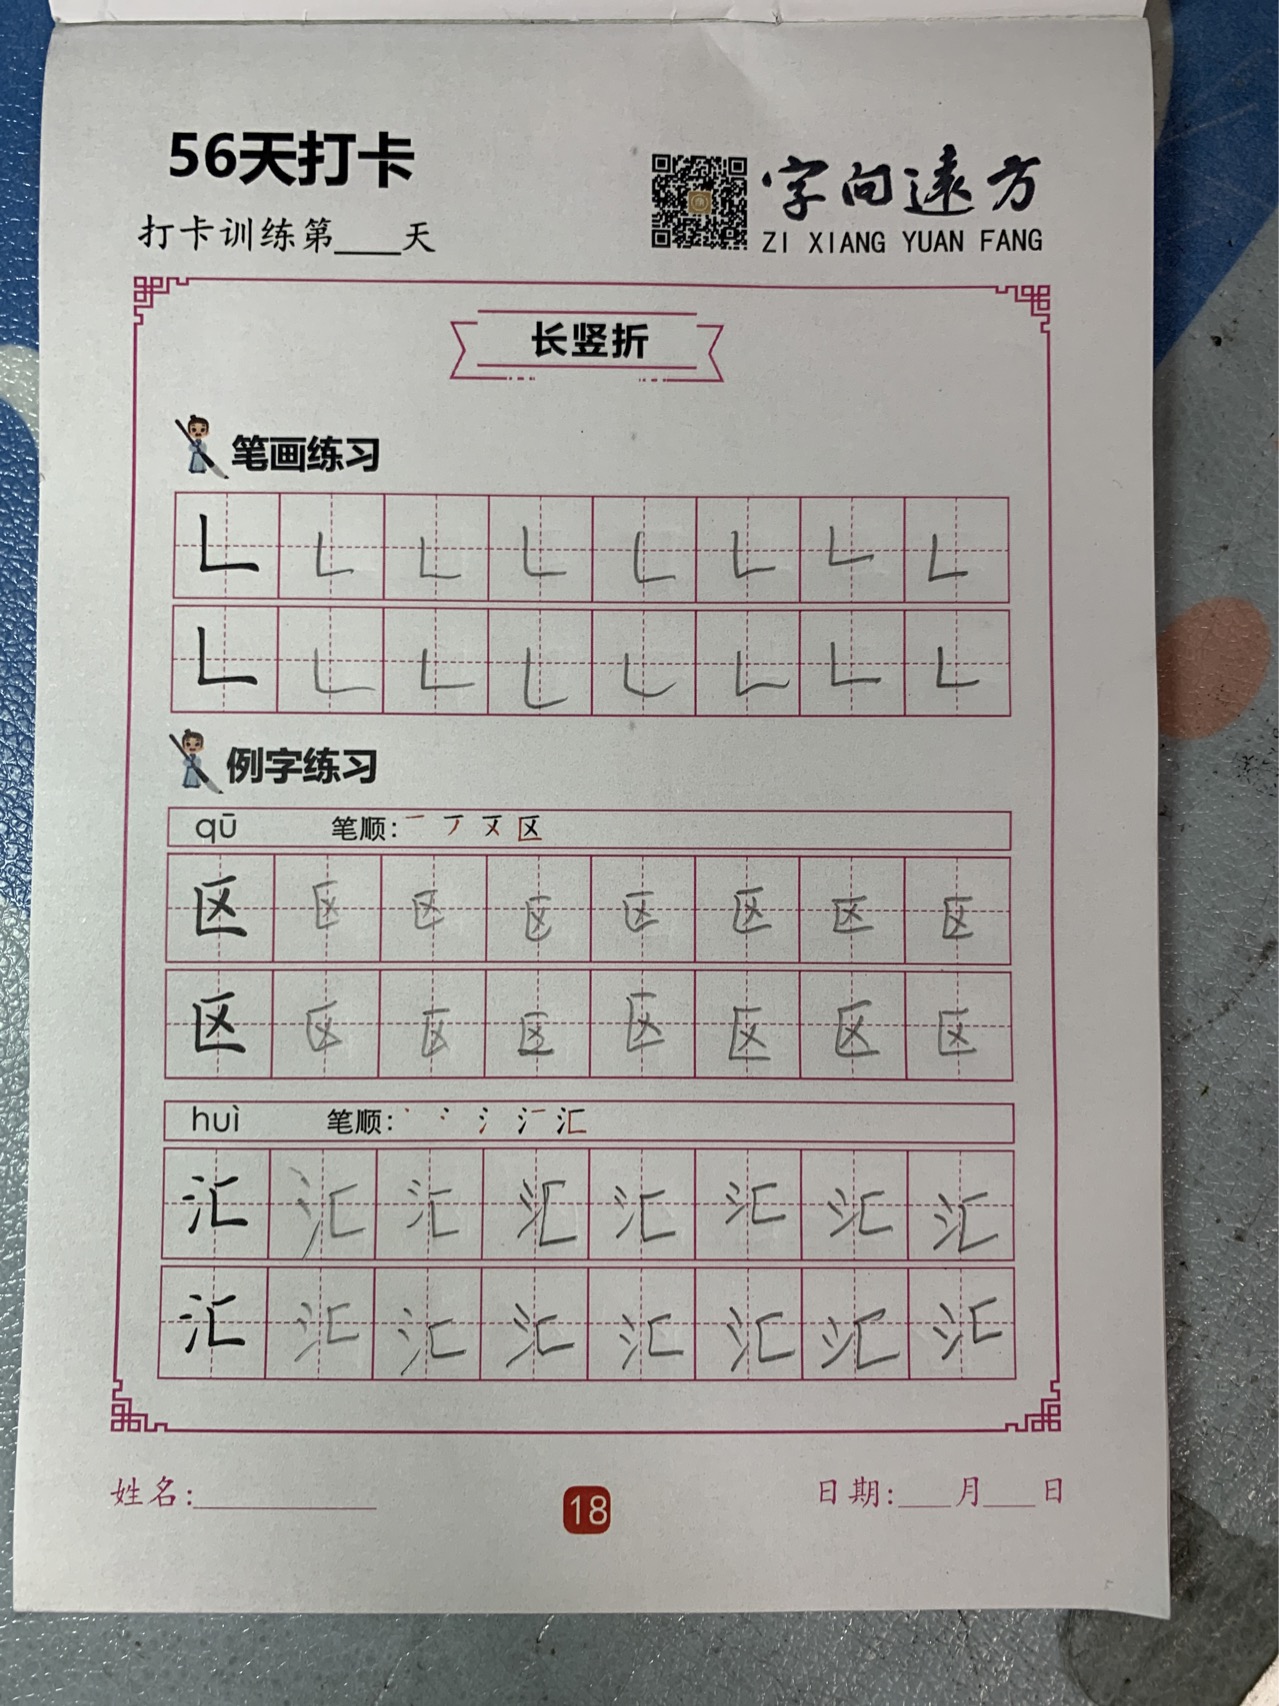 56天打卡
打卡训练第____天
字向遠方
ZI XIANG YUAN FANG
长竖折
笔画练习
𠃊 𠃊 𠃊 𠃊 𠃊 𠃊 𠃊 𠃊
𠃊 𠃊 𠃊 𠃊 𠃊 𠃊 𠃊 𠃊
例字练习
qū 笔顺: 一 丆 区
区 区 区 区 区 区 区 区
区 区 区 区 区 区 区 区
huì 笔顺: 丶 冫 氵 汇
汇 汇 汇 汇 汇 汇 汇 汇
汇 汇 汇 汇 汇 汇 汇 汇
姓名:__________ 18 日期:___月___日